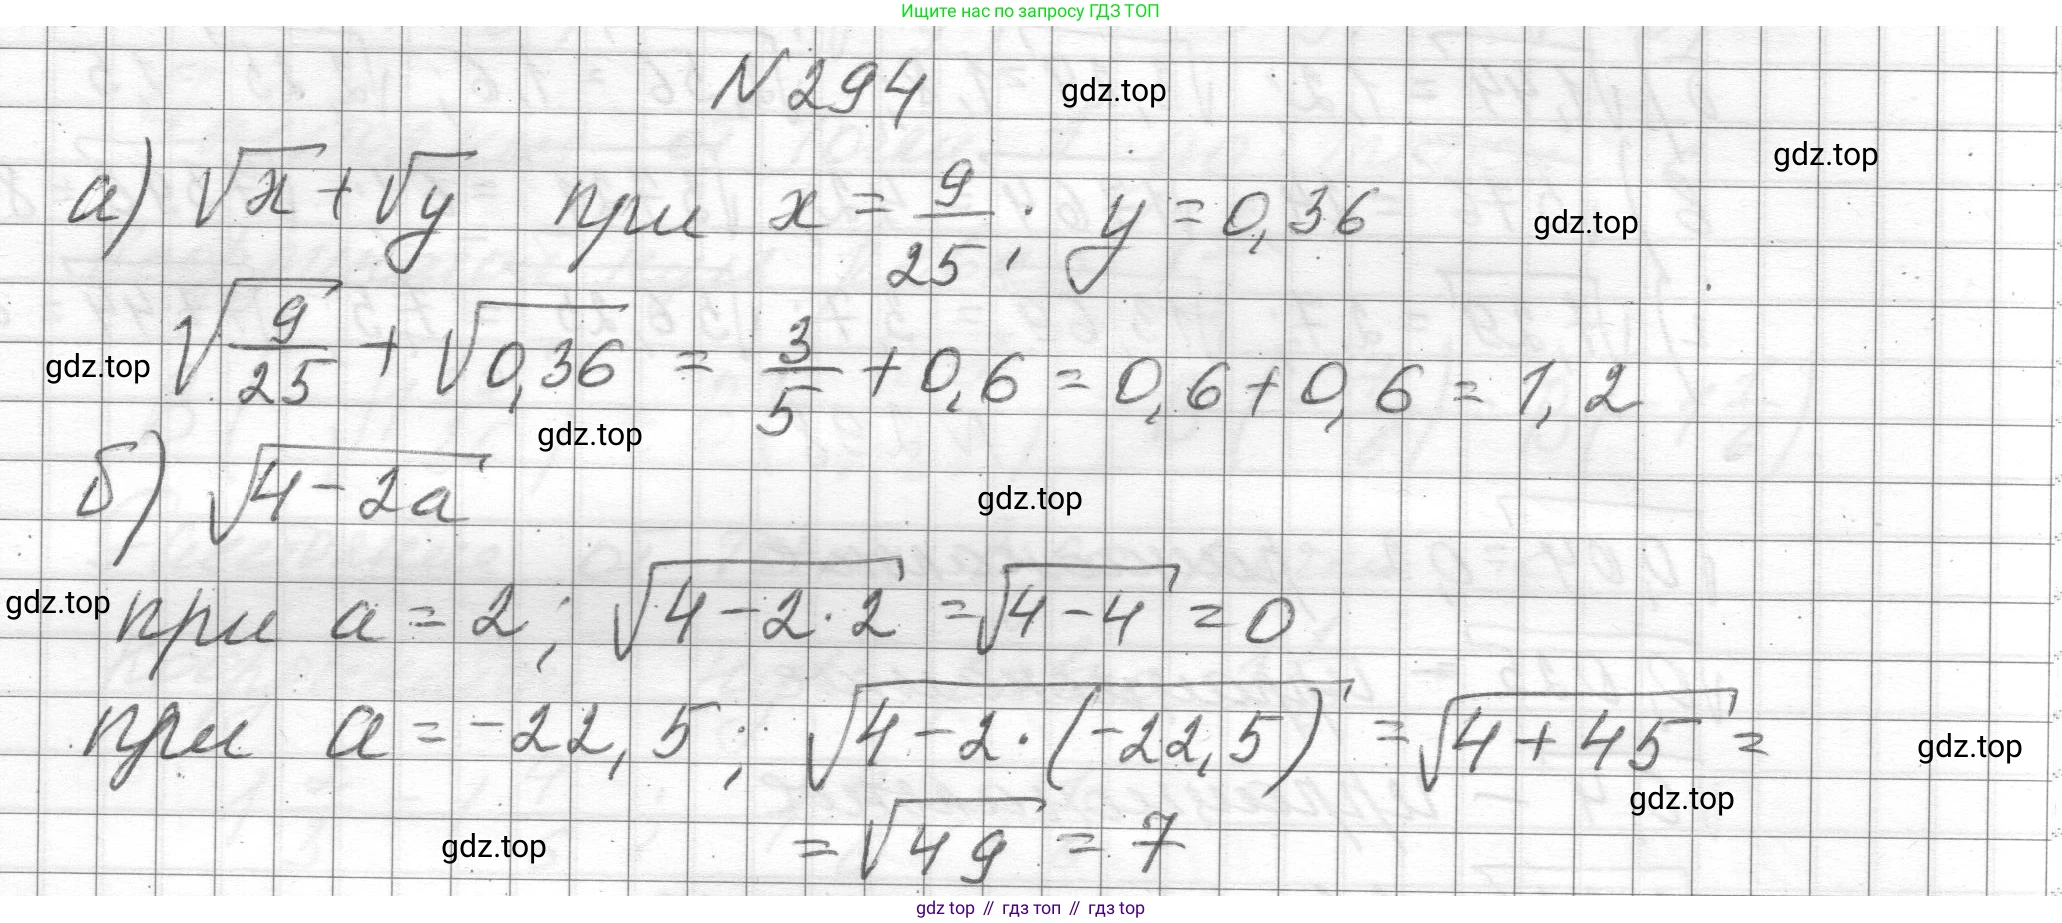 Ищите нас по запросу ГДЗ ТОП
N 294
gdz.top
gdz.top
а) √x + √y при x = 9/25; y = 0,36
gdz.top
√(9/25) + √0,36 = 3/5 + 0,6 = 0,6 + 0,6 = 1,2
gdz.top
gdz.top
б) √(4 - 2a)
gdz.top
при a = 2; √(4 - 2 · 2) = √(4 - 4) = 0
gdz.top
при a = -22,5; √(4 - 2 · (-22,5)) = √(4 + 45) =
gdz.top
gdz.top
= √49 = 7
gdz.top
gdz top // гдз топ // гдз top